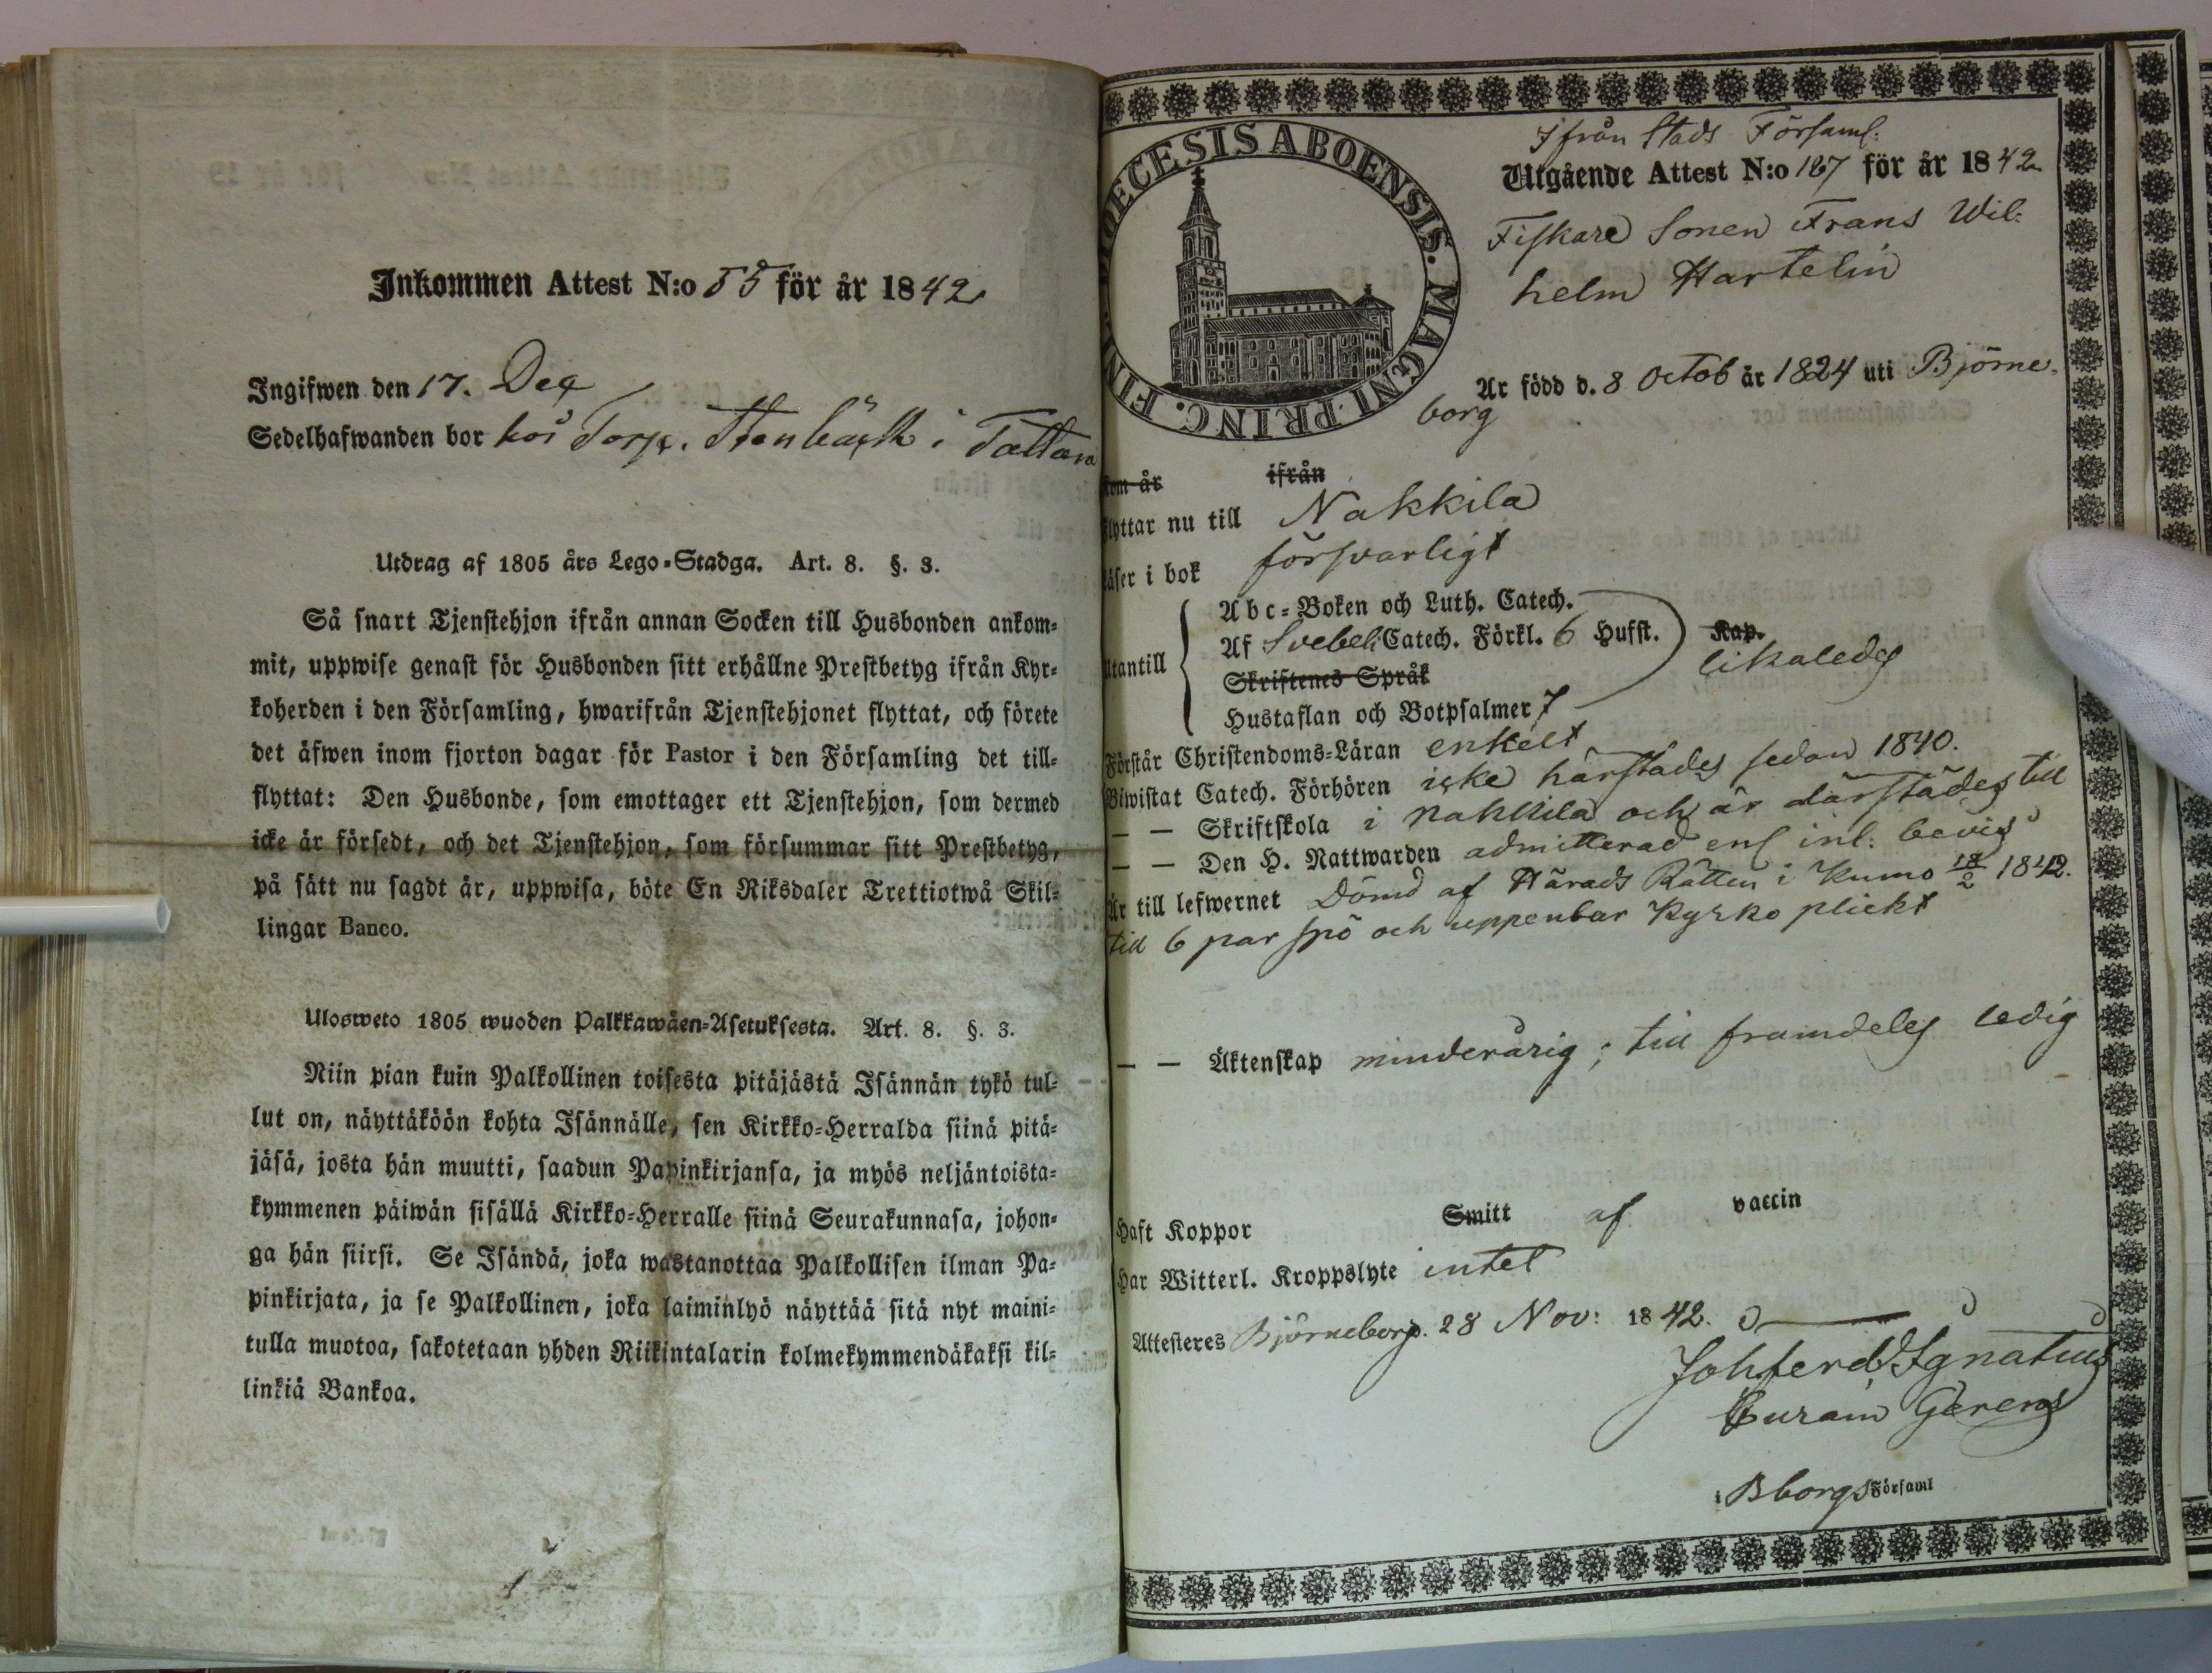 Inkommen Attest N:o 55 för år 1842
Ingifwen den 17. Dec
Sedelhafwanden bor hos Torp. Stenbäck i Tattara
Utdrag af 1805 års Lego-Stadga. Art. 8. §. 3.
Så snart Tjenstehjon ifrån annan Socken till Husbonden ankom-
mit, uppwise genast för Husbonden sitt erhållne Prestbetyg ifrån Kyr-
koherden i den Församling, hwarifrån Tjenstehjonet flyttat, och förete
det äfwen inom fjorton dagar för Pastor i den Församling det till-
flyttat: Den Husbonde, som emottager ett Tjenstehjon, som dermed
icke är försedt, och det Tjenstehjon, som försummar sitt Prestbetyg,
på sätt nu sagdt är, uppwisa, böte En Riksdaler Trettiotwå Skil-
lingar Banco.
Ulosweto 1805 wuoden Palkkawäen-Asetuksesta. Art. 8. §. 3.
Niin pian kuin Palkollinen toisesta pitäjästä Isännän tykö tul-
lut on, näyttäköön kohta Isännälle, sen Kirkko-Herralda siinä pitä-
jäsä, josta hän muutti, saadun Papinkirjansa, ja myös neljäntoista-
kymmenen päiwän sisällä Kirkko-Herralle siinä Seurakunnasa, johon-
ga hän siirsi. Se Isändä, joka wastanottaa Palkollisen ilman Pa-
pinkirjata, ja se Palkollinen, joka laiminlyö näyttää sitä nyt maini-
tulla muotoa, sakotetaan yhden Riikintalarin kolmekymmendäkaksi kil-
linkiä Bankoa.
DIOECESIS ABOENSIS. MAGNI PRINC. FIN
Ifrån Stads Församl:
Utgående Attest N:o 187 för år 1842
Fiskare Sonen Frans Wil-
helm Hartelin
Är född d. 8 Octob år 1824 uti Björne-
borg
kom år ifrån
flyttar nu till Nakkila
läser i bok försvarligt
Utantill
Abc-Boken och Luth. Catech.
Af Svebeli Catech. Förkl. 6 Hufst. Kap.
likaledes
Skriftenes Språk
Hustaflan och Botpsalmer 7
Förstår Christendoms-Läran enkelt
Biwistat Catech. Förhören icke härstädes sedan 1840.
— — Skriftskola i Nakkila och är därstädes till
— — Den H. Nattwarden admitterad enl inl: bevis
Är till lefwernet Dömd af Härads Rätten i Kumo 18/2 1842.
till 6 par spö och uppenbar Kyrko plickt
— — Äktenskap minderårig; till framdeles ledig
Haft Koppor Smitt af vaccin
Har Witterl. Kroppslyte intet
Attesteres Björneborg. 28 Nov: 1842.
Joh ferd. Ignatius
Curam Gerens
i Bborgs Församl